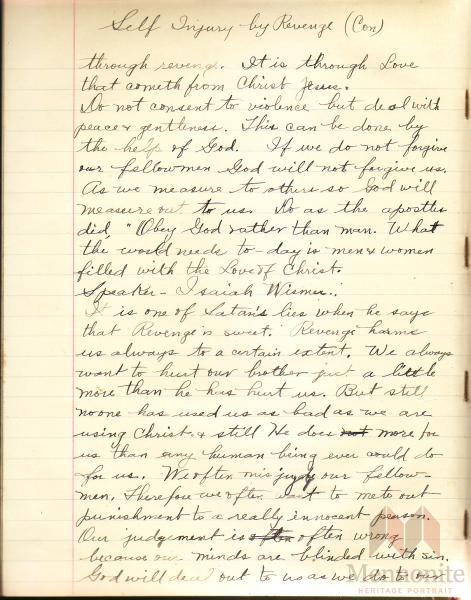 Self Injury by Revenge (Con)
through reveng. It is through Love
that cometh from Christ Jesus.
Do not consent to violence but deal with
peace & gentleness. This can be done by
the help of God. If we do not forgive
our fellowmen God will not forgive us.
As we measure to others so God will
measure out to us. Do as the apostles
did, "Obey God rather than man. What
the world needs to-day is men & women
filled with the Love of Christ.
Speaker - Isaiah Wismer.
It is one of Satan's lies when he says
that Revenge is sweet. Revenge harms
us always to a certain extent. We always
want to hurt our brother just a little
more than he has hurt us. But still
no one has used us as bad as we are
using Christ. & still He does not more for
us than any human being ever could do
for us. We often misjudge our fellow-
men. Therefore we often want to mete out
punishment to a really innocent person.
Our judgement is often often wrong
because our minds are blinded with sin.
God will deal out to us as we do to our
Mennonite
HERITAGE PORTRAIT